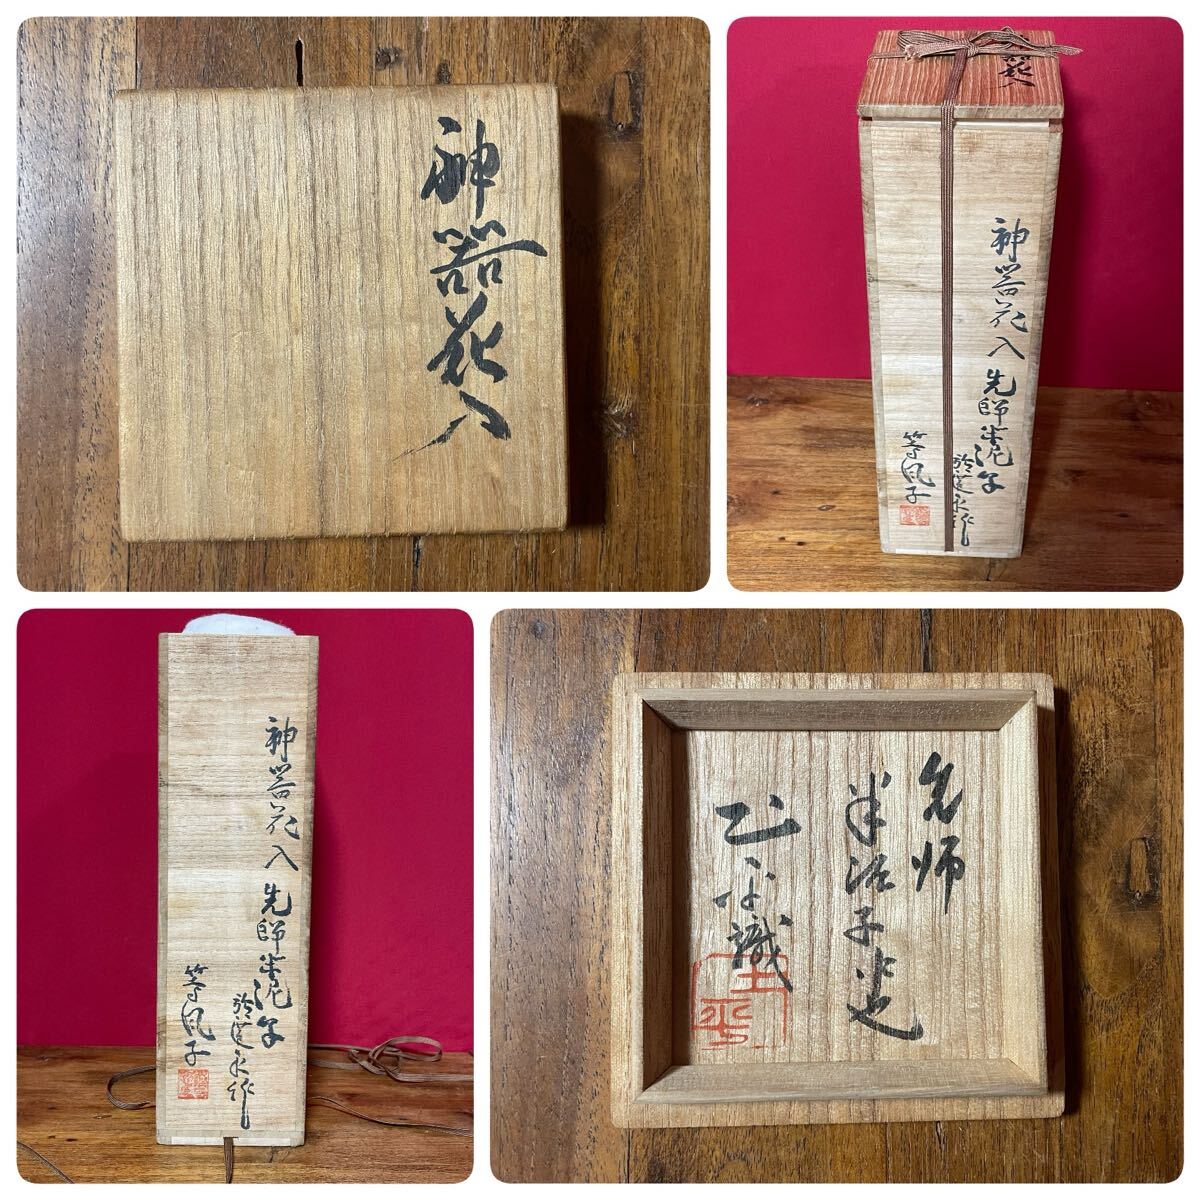 神器花入
花入
神器花入 先師半泥子
造之 作
等風子
神器花入 先師半泥子
等風子
先師
半泥子造
乙平識